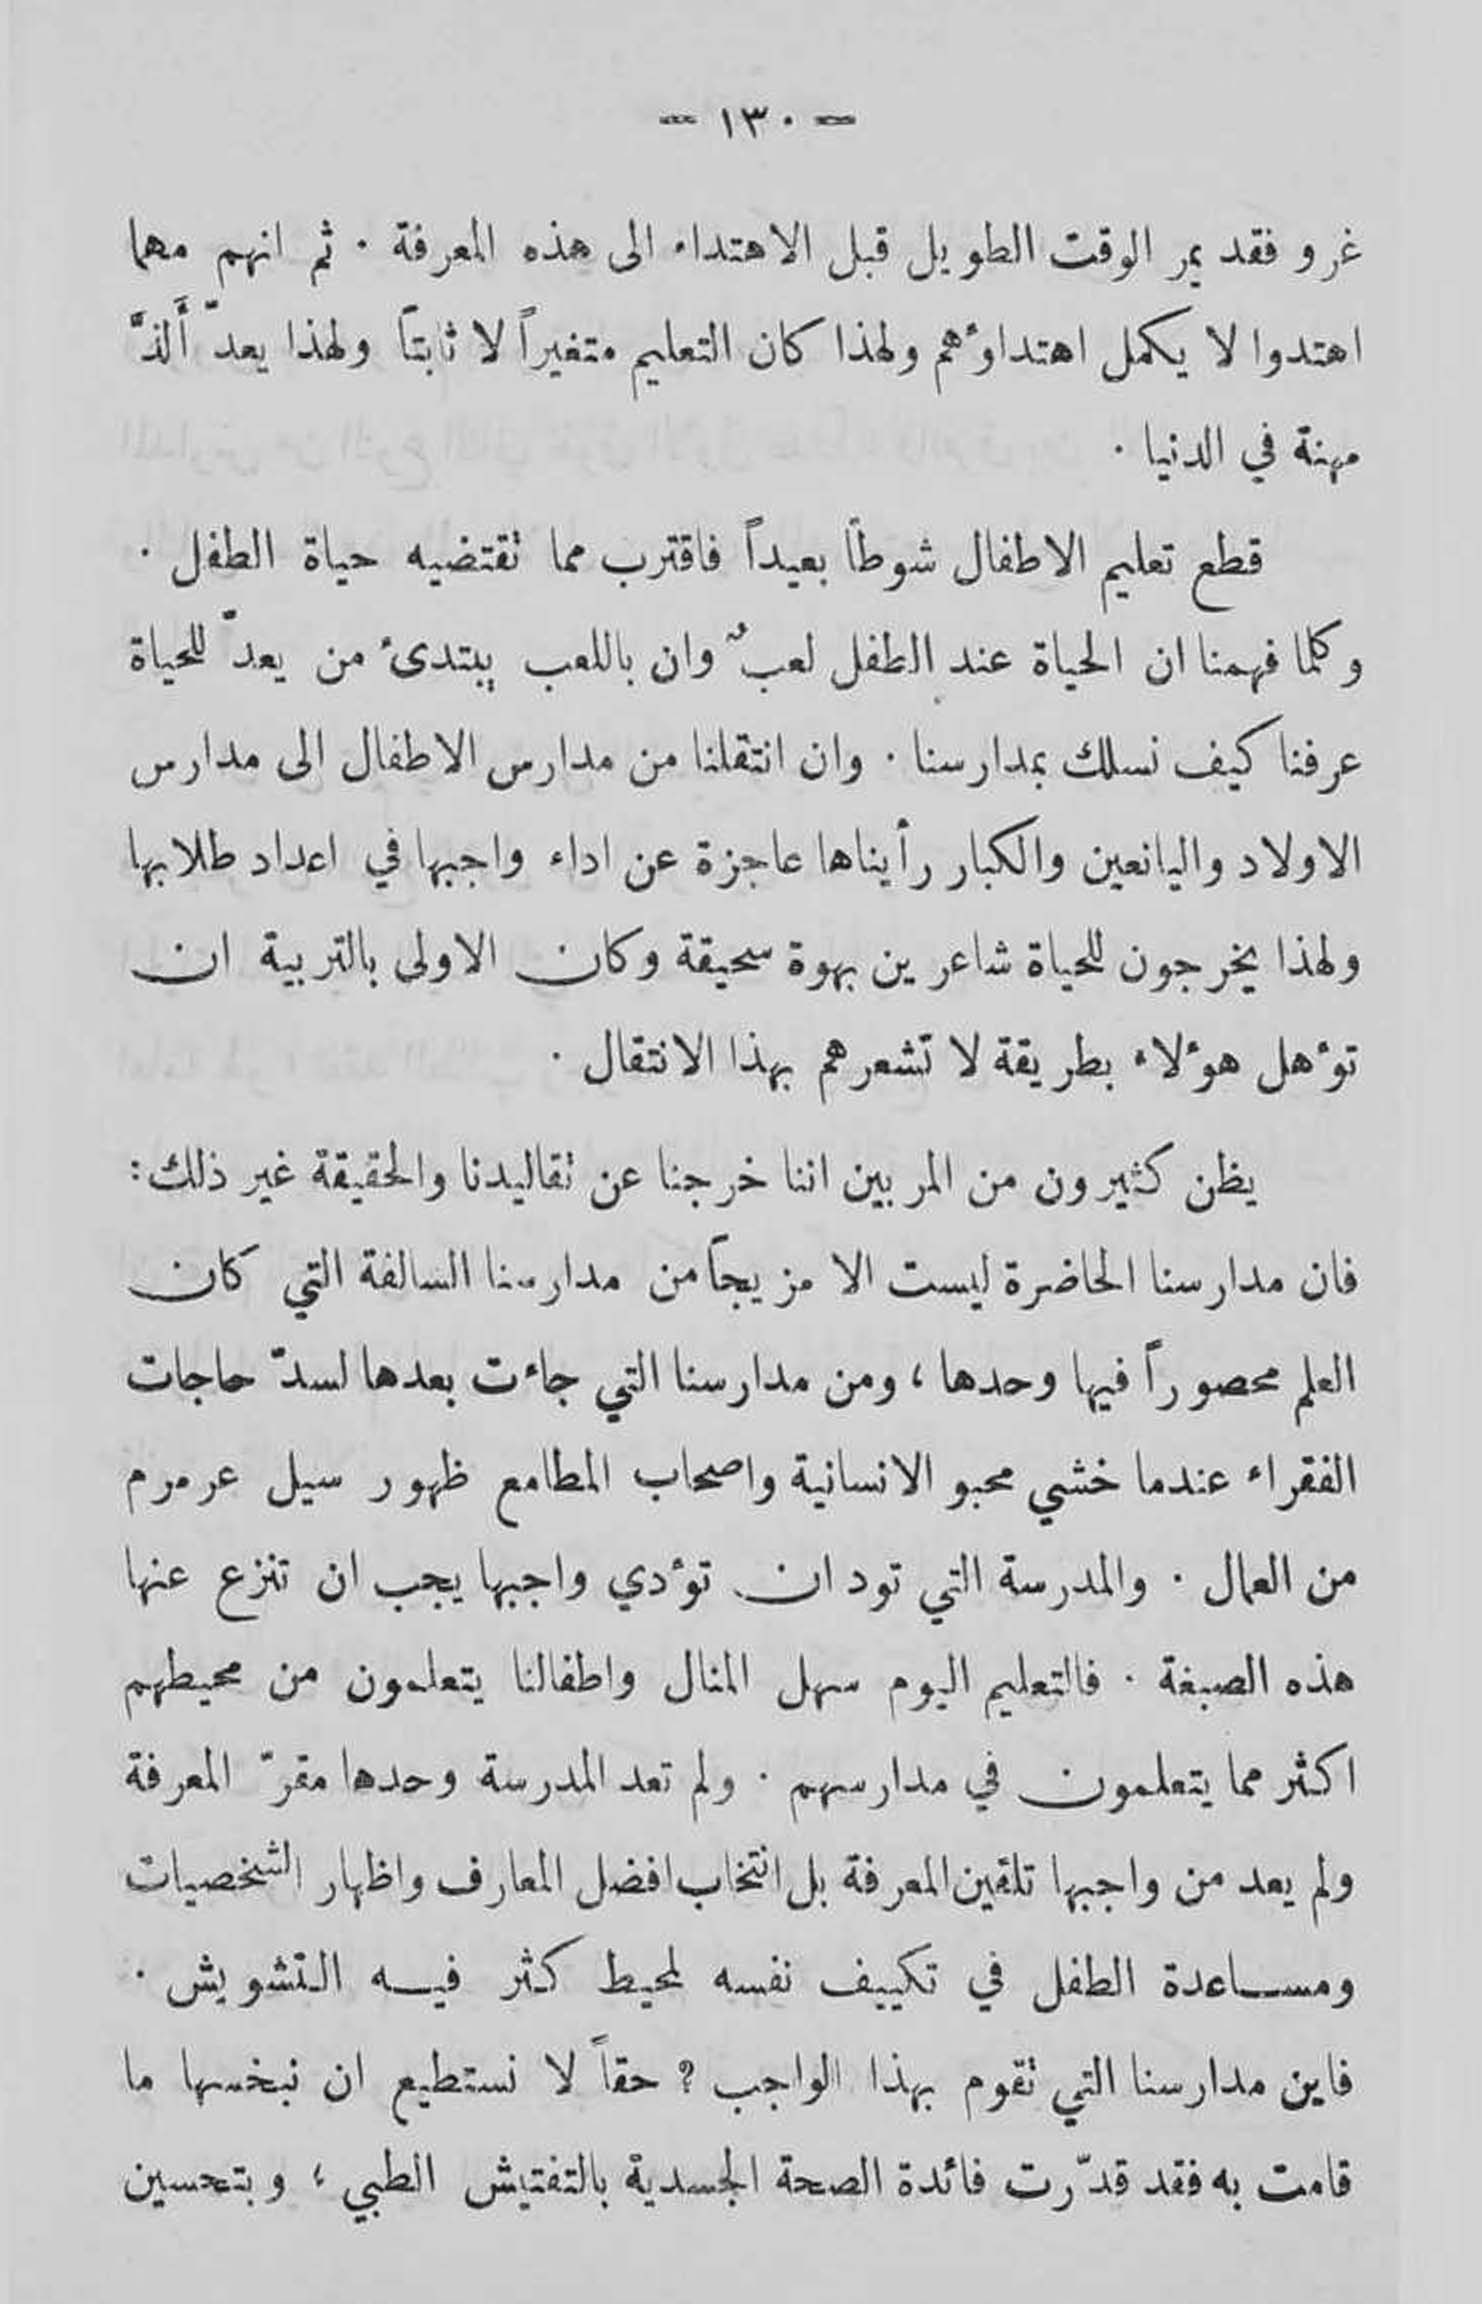 - ١٣٠ -
غرو فقد يمر الوقت الطويل قبل الاهتداء الى هذه المعرفة . ثم انهم مهما
اهتدوا لا يكمل اهتداؤهم ولهذا كان التعليم متغيراً لا ثابتاً ولهذا يعدّ أَلذَّ
مهنة في الدنيا .
قطع تعليم الاطفال شوطاً بعيداً فاقترب مما تقتضيه حياة الطفل .
وكلما فهمنا ان الحياة عند الطفل لعبٌ وان باللعب يبتدئ من يعدّ للحياة
عرفنا كيف نسلك بمدارسنا . وان انتقلنا من مدارس الاطفال الى مدارس
الاولاد واليانعين والكبار رأيناها عاجزة عن اداء واجبها في اعداد طلابها
ولهذا يخرجون للحياة شاعرين بهوة سحيقة وكان الاولى بالتربية ان
تؤهل هؤلاء بطريقة لا تشعرهم بهذا الانتقال .
يظن كثيرون من المربين اننا خرجنا عن تقاليدنا والحقيقة غير ذلك :
فان مدارسنا الحاضرة ليست الا مزيجاً من مدارسنا السالفة التي كان
العلم محصوراً فيها وحدها ، ومن مدارسنا التي جاءت بعدها لسدّ حاجات
الفقراء عندما خشي محبو الانسانية واصحاب المطامع ظهور سيل عرمرم
من العمال . والمدرسة التي تود ان تؤدي واجبها يجب ان تنزع عنها
هذه الصبغة . فالتعليم اليوم سهل المنال واطفالنا يتعلمون من محيطهم
اكثر مما يتعلمون في مدارسهم . ولم تعد المدرسة وحدها مقرّ المعرفة
ولم يعد من واجبها تلقين المعرفة بل انتخاب افضل المعارف واظهار الشخصيات
ومساعدة الطفل في تكييف نفسه لمحيط كثر فيه التشويش .
فاين مدارسنا التي تقوم بهذا الواجب ؟ حقاً لا نستطيع ان نبخسها ما
قامت به فقد قدّرت فائدة الصحة الجسدية بالتفتيش الطبي ، وبتحسين